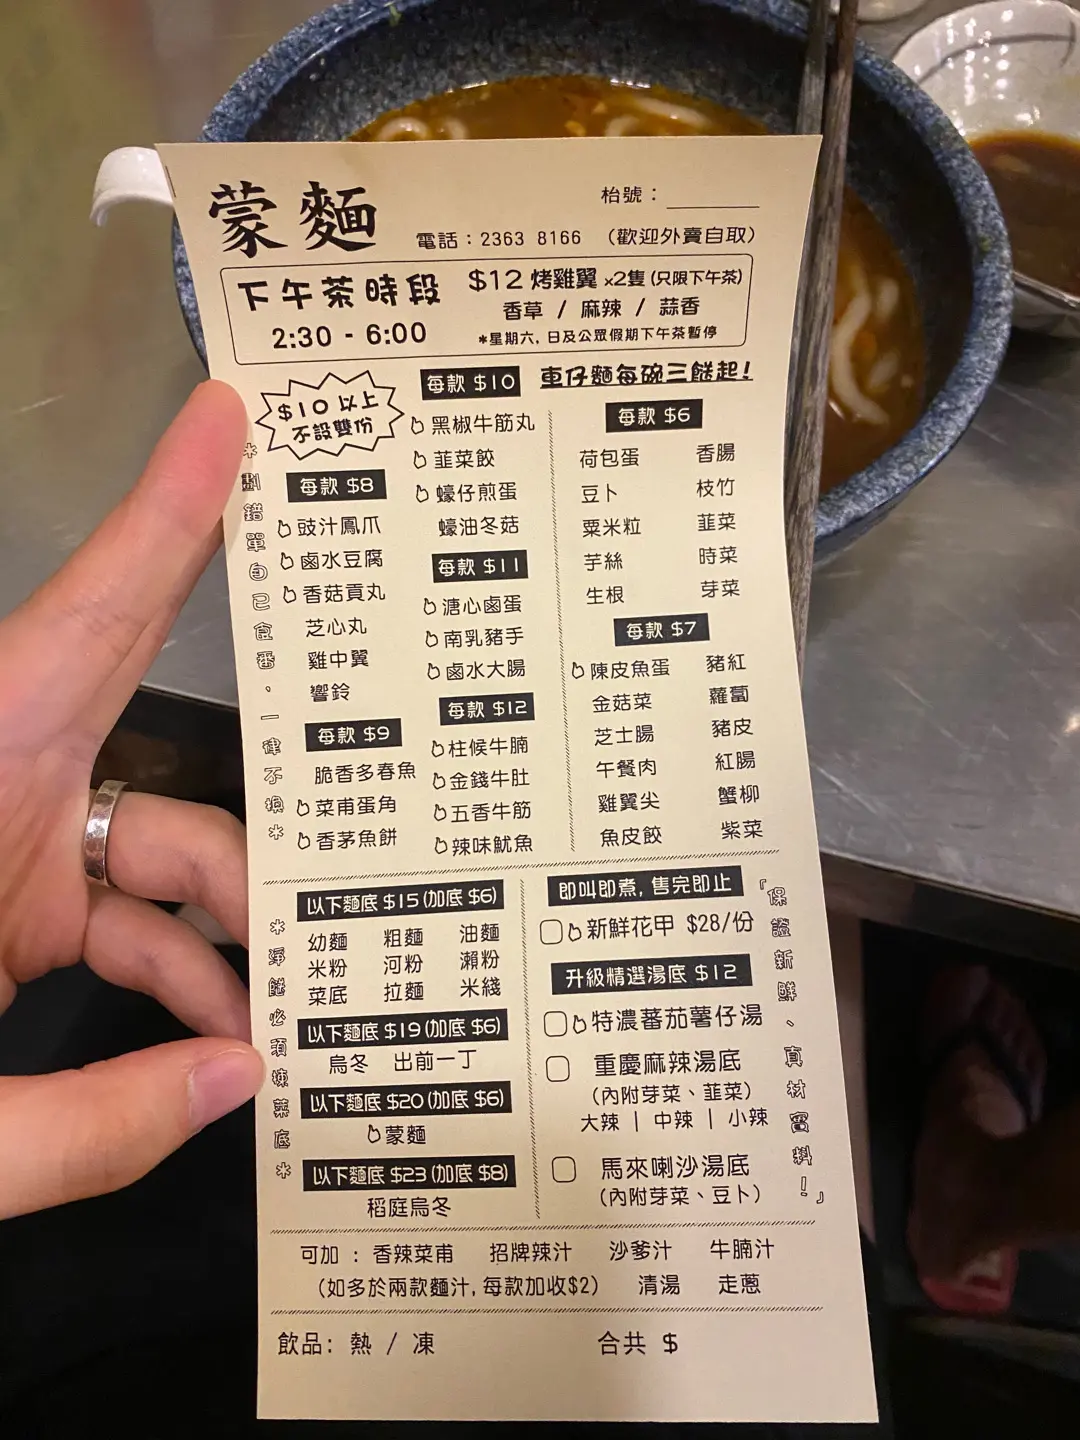 蒙麵
枱號：
電話：2363 8166 （歡迎外賣自取）
下午茶時段
2:30 - 6:00
$12 烤雞翼 x2隻 (只限下午茶)
香草 / 麻辣 / 蒜香
*星期六, 日及公眾假期下午茶暫停
$10 以上
不設雙份
*劃錯單自己食番、一律不換*
每款 $8
豉汁鳳爪
鹵水豆腐
香菇貢丸
芝心丸
雞中翼
響鈴
每款 $9
脆香多春魚
菜甫蛋角
香茅魚餅
每款 $10
黑椒牛筋丸
韮菜餃
蠔仔煎蛋
蠔油冬菇
每款 $11
溏心鹵蛋
南乳豬手
鹵水大腸
每款 $12
柱候牛腩
金錢牛肚
五香牛筋
辣味魷魚
車仔麵每碗三餸起!
每款 $6
荷包蛋 香腸
豆卜 枝竹
粟米粒 韮菜
芋絲 時菜
生根 芽菜
每款 $7
陳皮魚蛋 豬紅
金菇菜 蘿蔔
芝士腸 豬皮
午餐肉 紅腸
雞翼尖 蟹柳
魚皮餃 紫菜
*淨餸必須揀菜底*
以下麵底 $15 (加底 $6)
幼麵 粗麵 油麵
米粉 河粉 瀨粉
菜底 拉麵 米綫
以下麵底 $19 (加底 $6)
烏冬 出前一丁
以下麵底 $20 (加底 $6)
蒙麵
以下麵底 $23 (加底 $8)
稻庭烏冬
即叫即煮, 售完即止
新鮮花甲 $28/份
升級精選湯底 $12
特濃蕃茄薯仔湯
重慶麻辣湯底
（內附芽菜、韮菜）
大辣 | 中辣 | 小辣
馬來喇沙湯底
（內附芽菜、豆卜）
『保證新鮮、真材實料！』
可加 : 香辣菜甫 招牌辣汁 沙爹汁 牛腩汁
（如多於兩款麵汁, 每款加收$2） 清湯 走蔥
飲品: 熱 / 凍 合共 $